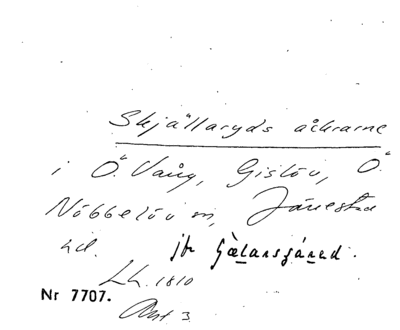 Skjällaryds åkrarne
i Ö. Vång, Gislöv, Ö.
Nöbbelöv sn, Järrestad
hd. jfr
Lh. 1810
Akt 3
Nr 7707.